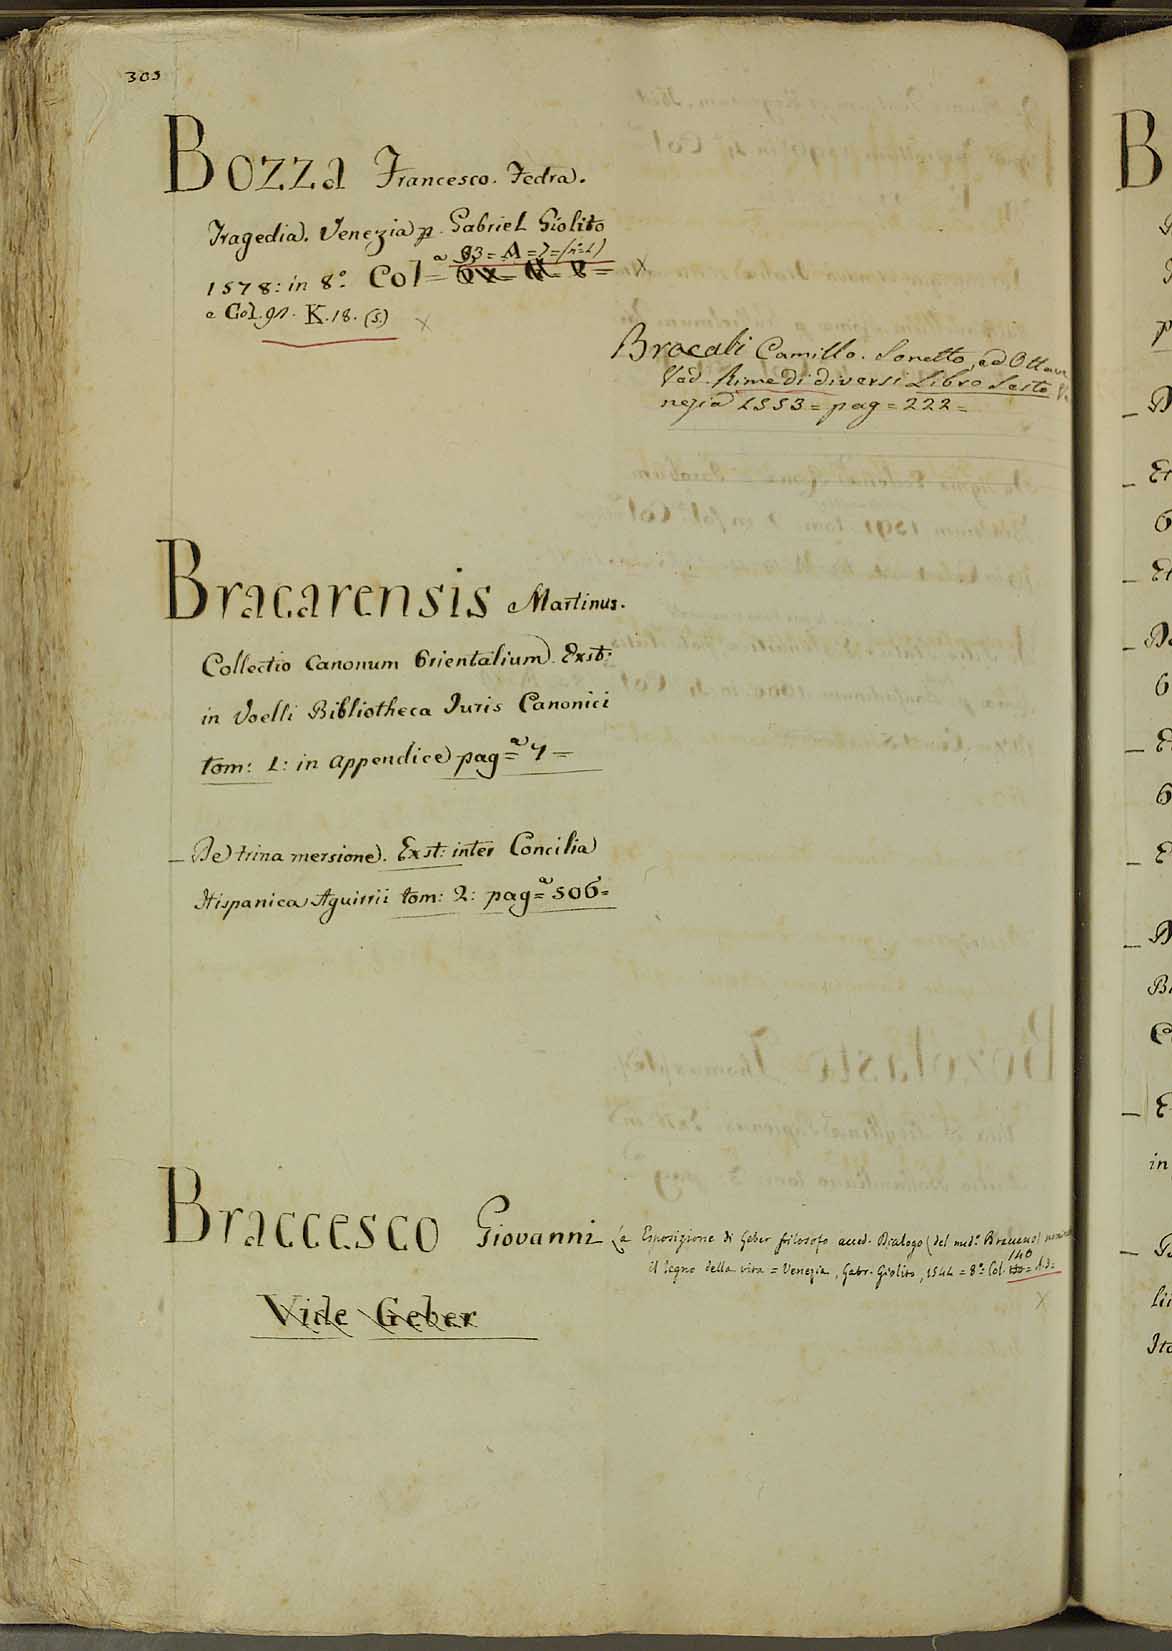 303
Bozza Francesco. Fedra.
Tragedia. Venezia p. Gabriel Giolito
83 = A = 7 =
1578: in 8.º Col =
e Col. 91. K. 18. (5.)
Bracali Camillo. Sonetto, ad Ottav
Vod. Rime di diversi Libro Sesto Ve
nezia 1553 = pag = 222 =
Bracarensis Martinus.
Collectio Canonum Orientalium. Exst:
in Voelli Bibliotheca Juris Canonici
tom: 1: in appendice pag=ª 7 =
_ De trina mersione. Exst: inter Concilia
Hispanica Aguirrii tom: 2: pag=ª 506=
Braccesco Giovanni La Esposizione di Geber filosofo acced. Dialogo (del med.º Braccesco) nominato
140
il legno della vita = Venezia, Gabr. Giolito, 1544 = 8º = Col.
Vide Geber